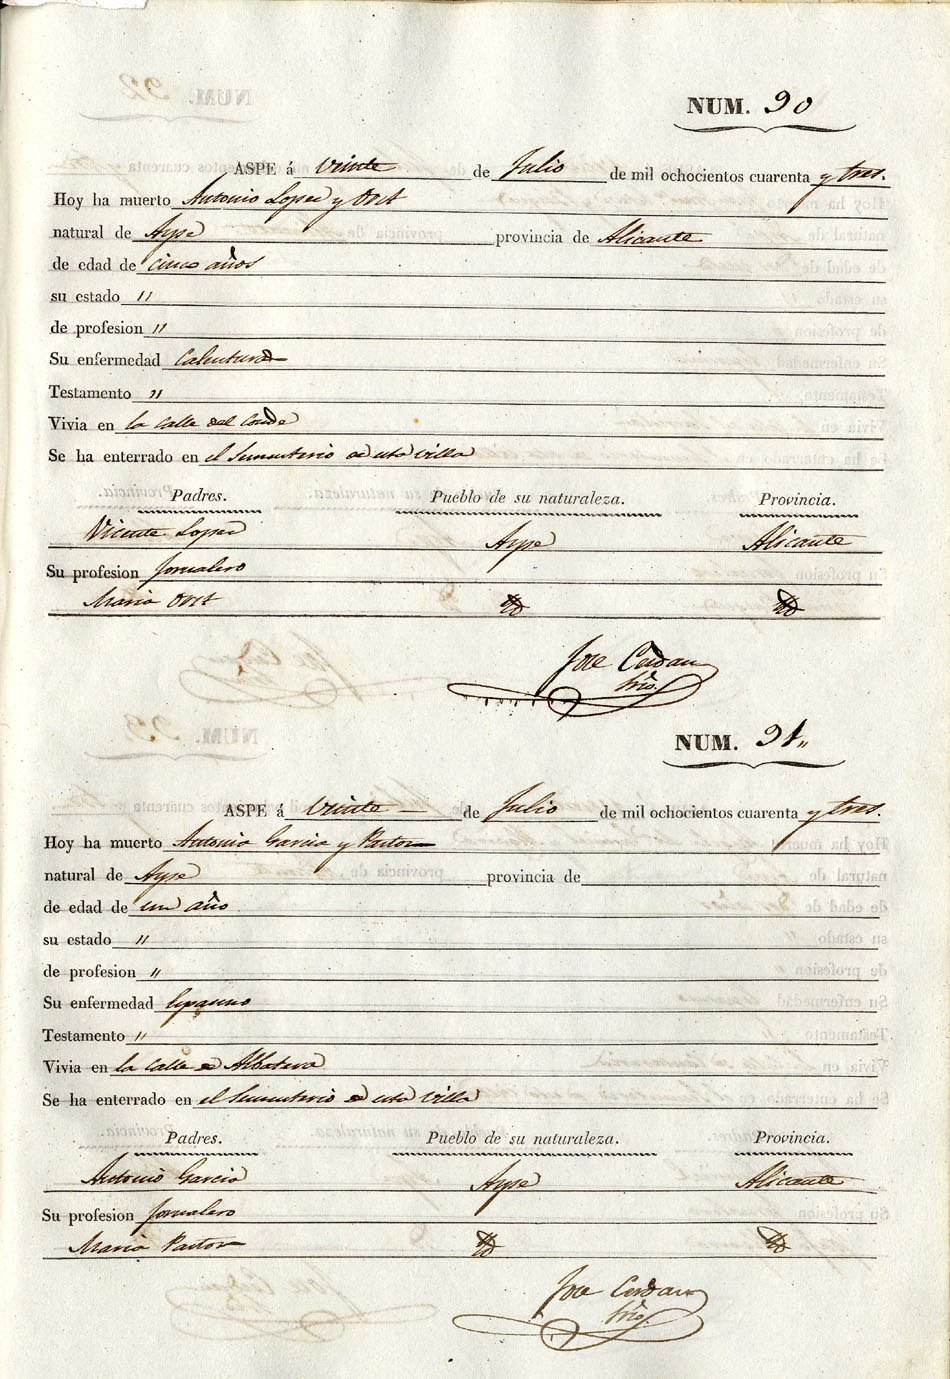 NUM. 90
ASPE á veinte de Julio de mil ochocientos cuarenta y tres.
Hoy ha muerto Antonio Lopez y Ort
natural de Aspe provincia de Alicante
de edad de cinco años
su estado "
de profesion "
Su enfermedad Calentura
Testamento "
Vivia en la calle del Conde
Se ha enterrado en el Sementerio de esta villa
Padres. Pueblo de su naturaleza. Provincia.
Vicente Lopez Aspe Alicante
Su profesion Jornalero
Maria Ort Yd Yd
Jose Cerdan
Srio.
NUM. 91"
ASPE á veinte de Julio de mil ochocientos cuarenta y tres.
Hoy ha muerto Antonia Garcia y Pastor
natural de Aspe provincia de
de edad de un año
su estado "
de profesion "
Su enfermedad
Testamento "
Vivia en la calle de Albatera
Se ha enterrado en el Sementerio de esta villa
Padres. Pueblo de su naturaleza. Provincia.
Antonio Garcia Aspe Alicante
Su profesion Jornalero
Maria Pastor Yd Yd
Jose Cerdan
Srio.